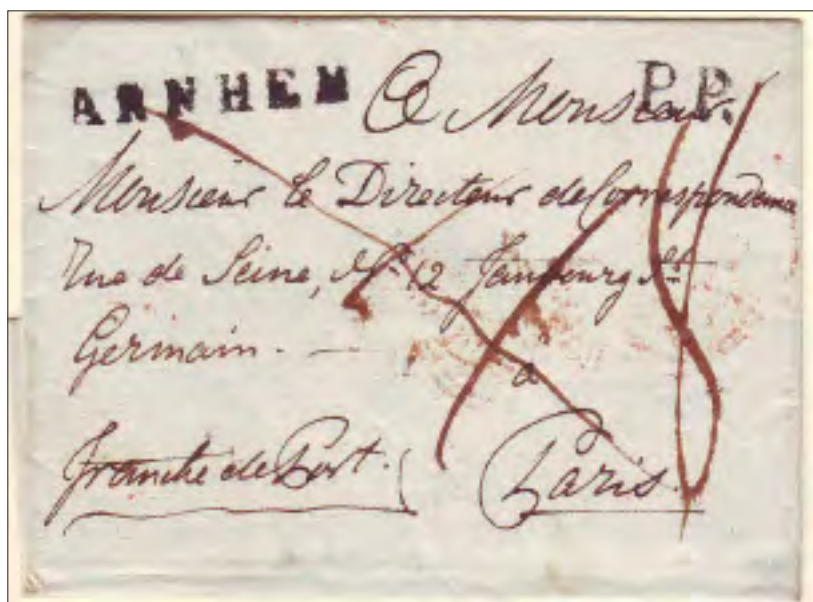 ARNHEM P.P.
A Monsieur
Monsieur le Directeur de Correspondance
rue de Seine, No. 12 Faubourg St.
Germain. —
à
franche de Port. Paris.
18